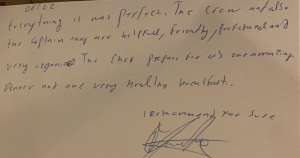 Everything it was perfect. The crew and also
the captain may are helpful, friendly, profetional and
very organised. The chef prepare for us one amazing
dinner and one very healthy breakfast.
I recommend for sure